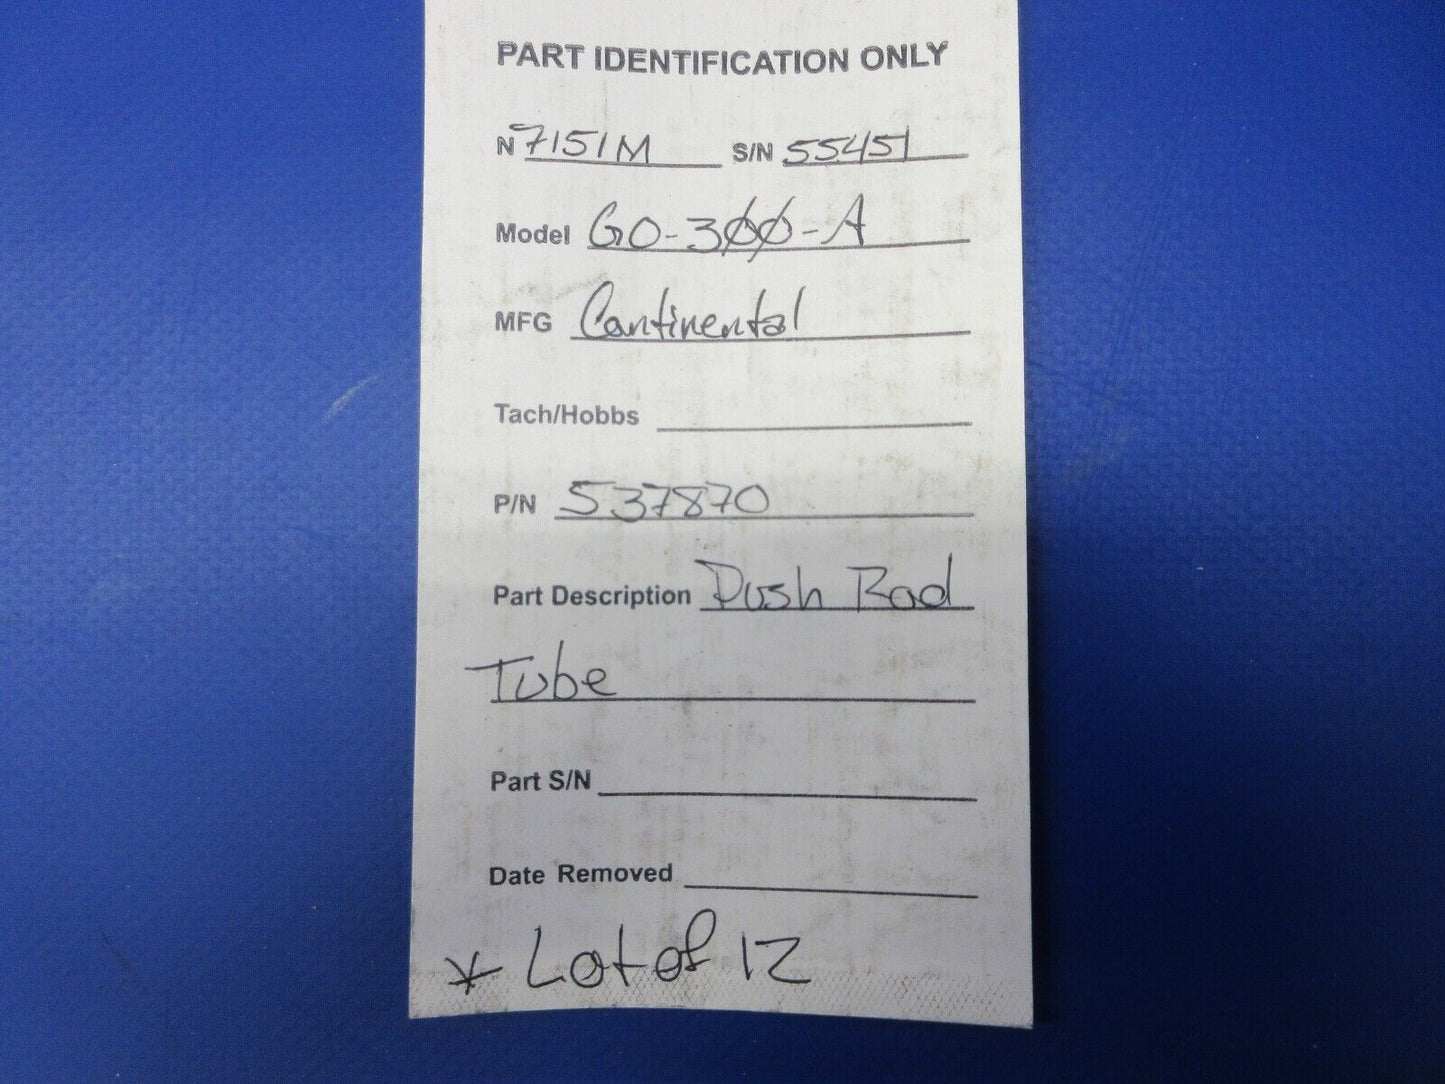 PART IDENTIFICATION ONLY
N 7151M S/N 55451
Model GO-300-A
MFG Continental
Tach/Hobbs
P/N 537870
Part Description Push Rod
Tube
Part S/N
Date Removed
* Lot of 12